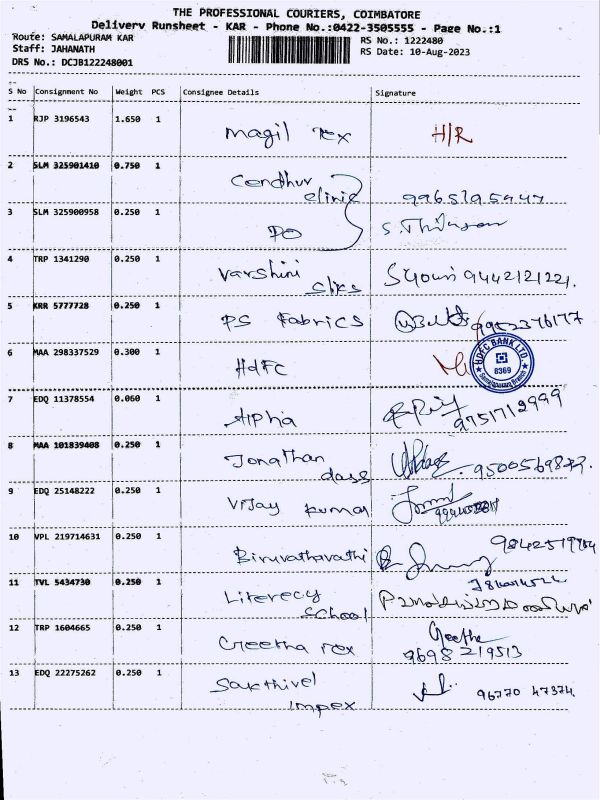 THE PROFESSIONAL COURIERS, COIMBATORE
Delivery Runsheet - KAR - Phone No.:0422-3505555 - Page No.:1
Route: SAMALAPURAM KAR
RS No.: 1222480
Staff: JAHANATH
RS Date: 10-Aug-2023
DRS No.: DCJB122248001
S No Consignment No Weight PCS Consignee Details Signature
1 RJP 3196543 1.650 1
Magil Tex H/R
2 SLM 325901410 0.750 1
Cendhur
clinic
3 SLM 325900958 0.250 1
DO
4 TRP 1341290 0.250 1
Varshini
Slks 9442121221.
5 KRR 5777728 0.250 1
PS Fabrics 9952376177
6 MAA 298337529 0.300 1
HDFC HDFC BANK LTD. 8369
7 EDQ 11378554 0.060 1
Alpha 9751712999
8 MAA 101839408 0.250 1
Jonathan
dass
9 EDQ 25148222 0.250 1
Vijay Kumar
10 VPL 219714631 0.250 1
Biruvathavathi
11 TVL 5434730 0.250 1
Literecy
School
12 TRP 1604665 0.250 1 Geetha
Geetha Tex 9698 219513
13 EDQ 22275262 0.250 1
Sakthivel
Impex 96770 47374